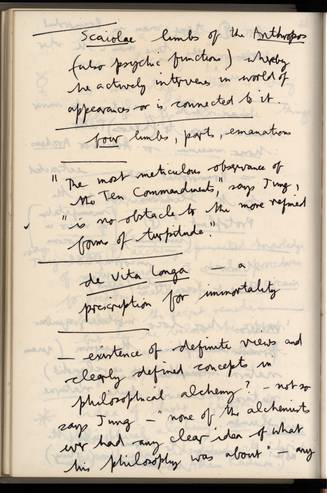 Scaiolae limbs of the Anthropos
(also psychic functions) whereby
he actively intervenes in world of
appearances or is connected to it.
four limbs, parts, emanations
"The most meticulous observance of
the Ten Commandments," says Jung,
"is no obstacle to the more refined
forms of turpitude."
de Vita Longa — a
prescription for immortality
— existence of definite views and
clearly defined concepts in
philosophical alchemy? - not so
says Jung — "none of the alchemists
ever had any clear idea of what
his philosophy was about" — any